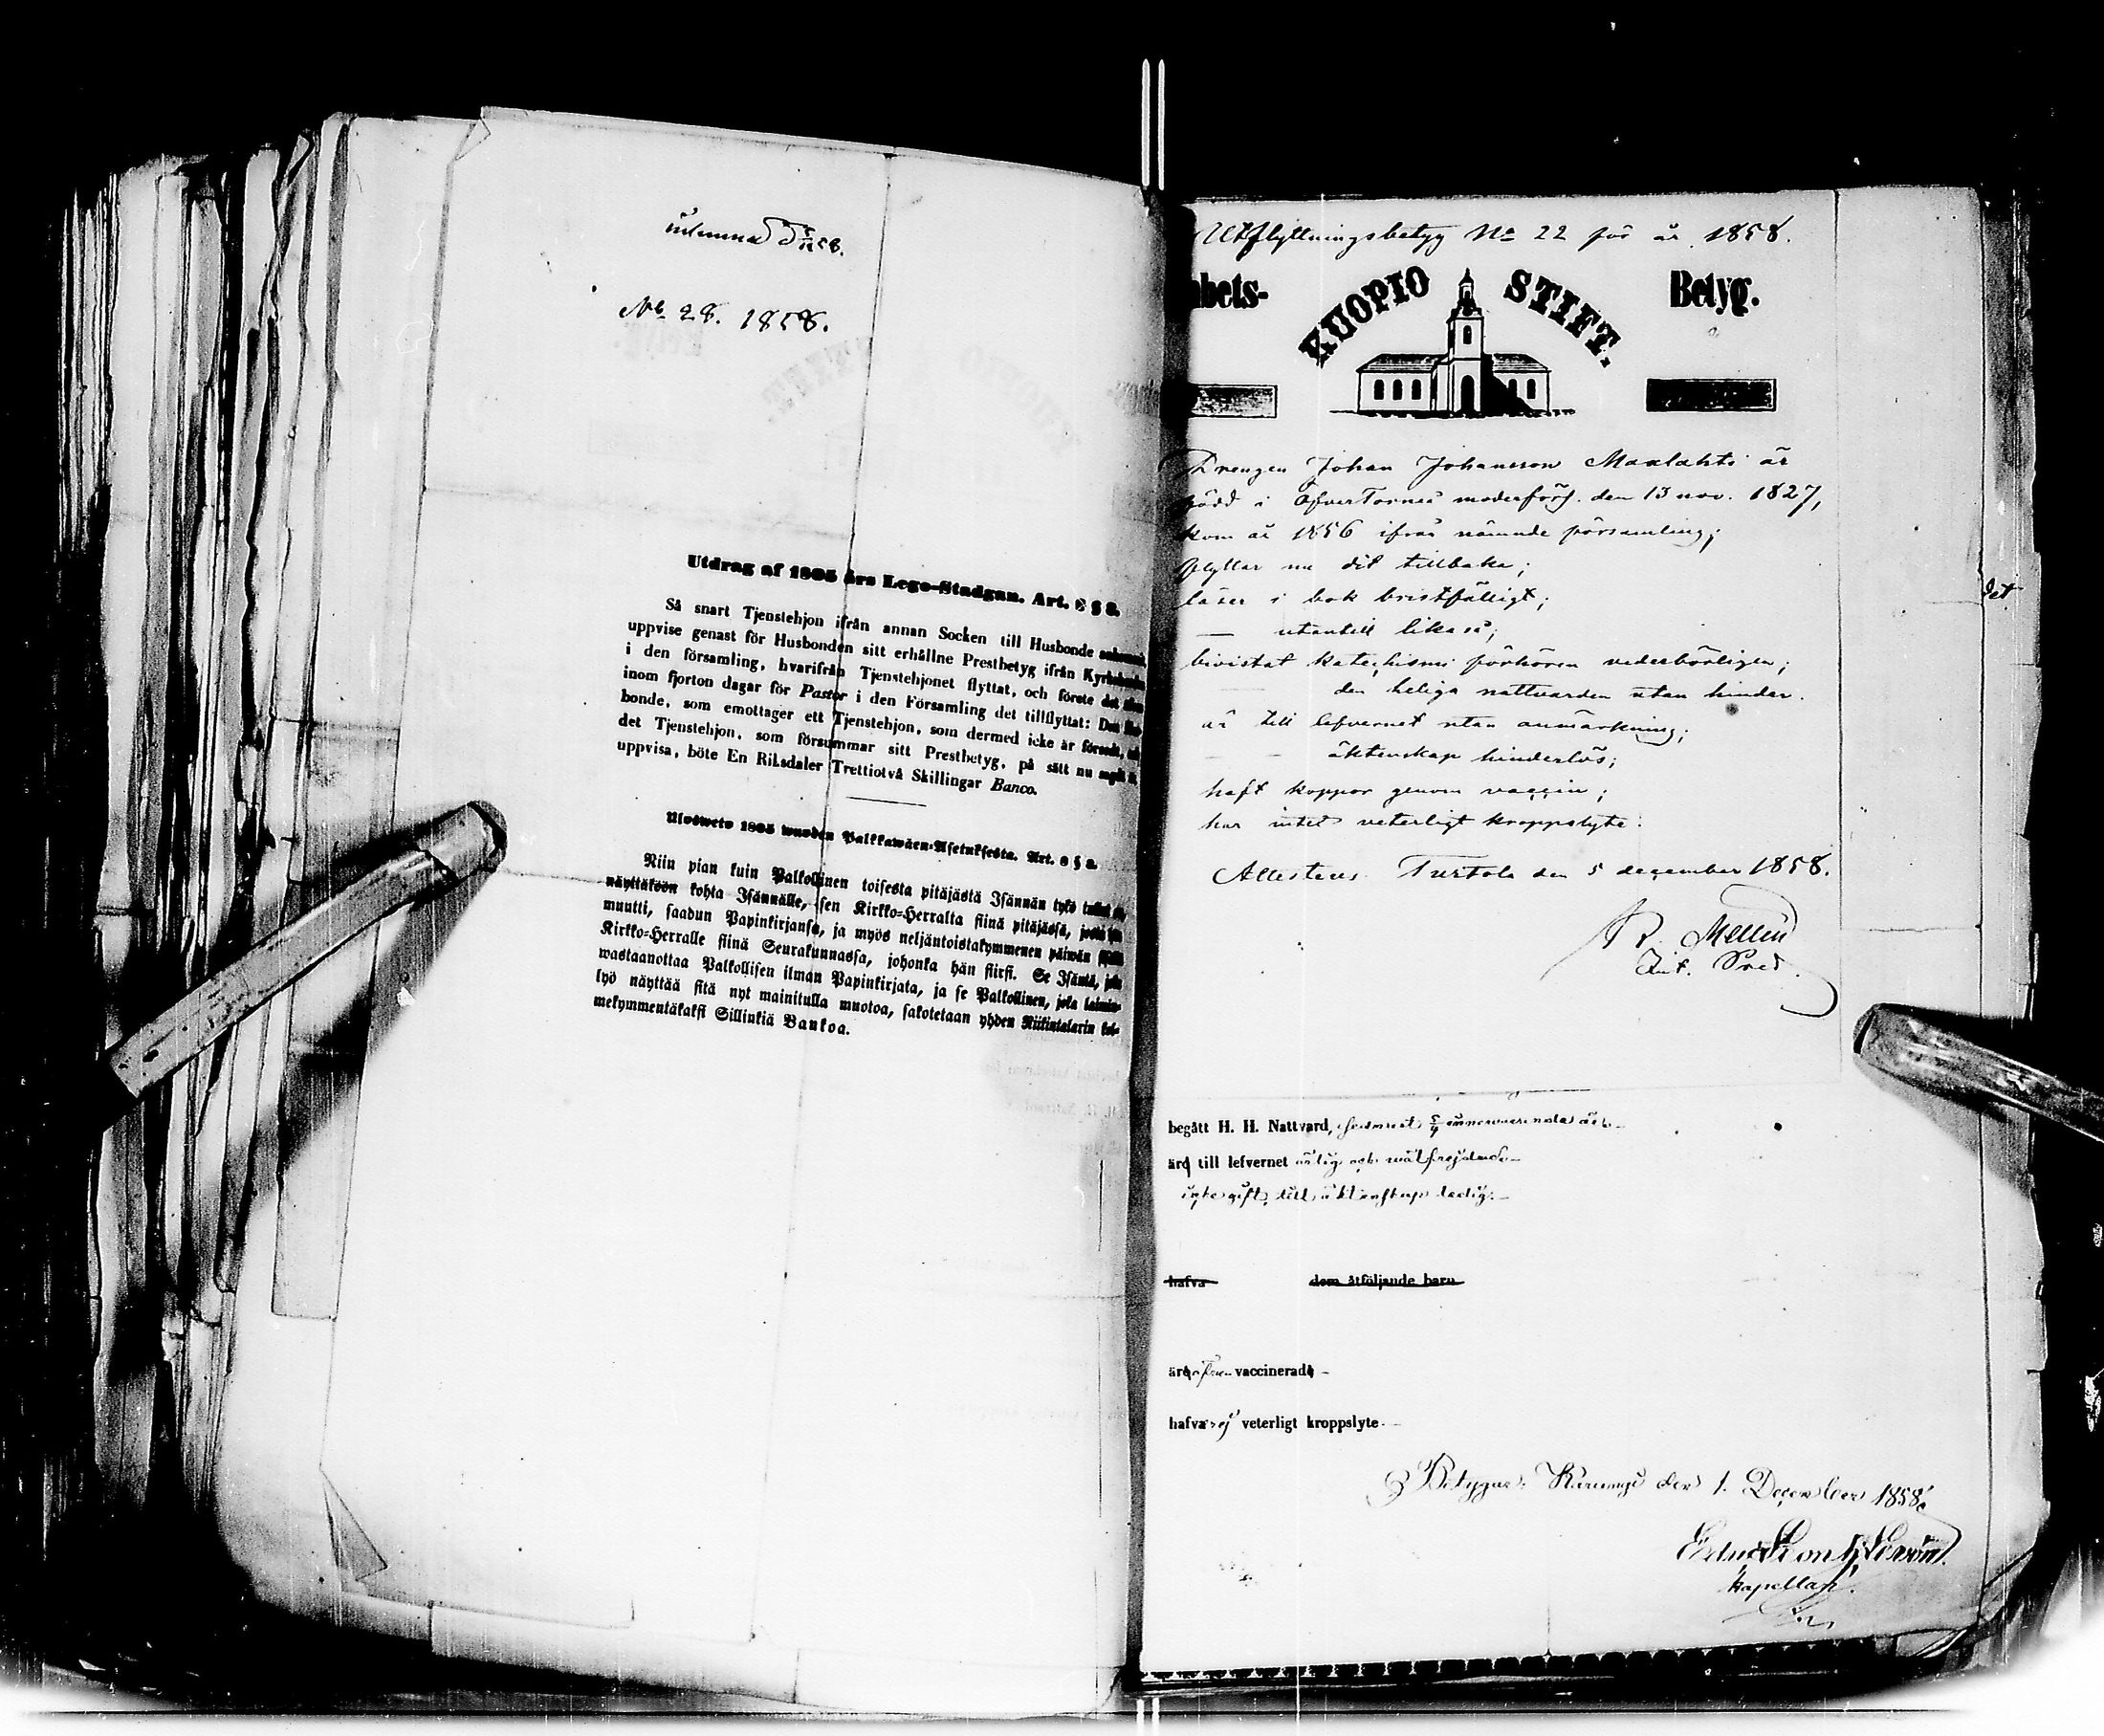 inlemnad d 5/12 58.
No 28. 1858.
Utdrag af 1805 års Lego-Stadgan. Art. 6 § 8.
Så snart Tjenstehjon ifrån annan Socken till Husbonde ankommit,
uppvise genast för Husbonden sitt erhållne Prestbetyg ifrån
i den församling, hvarifrån Tjenstehjonet flyttat, och förete det
inom fjorton dagar för Pastor i den Församling det tillflyttat: Den
bonde, som emottager ett Tjenstehjon, som dermed icke är försedt,
det Tjenstehjon, som försummar sitt Prestbetyg, på sätt nu sagdt
uppvisa, böte En Riksdaler Trettiotvå Skillingar Banco.
Ulosweto 1805 wuoden Palkkawäen-Asetuksesta. Art. 6 § 8.
Niin pian kuin Palkollinen toisesta pitäjästä Isännän tykö
näyttäköön kohta Isännälle, sen Kirkko-Herralta siinä pitäjässä, josta
muutti, saadun Papinkirjansa, ja myös neljäntoistakymmenen päiwän
Kirkko-Herralle siinä Seurakunnassa, johonka hän siirsi. Se Isäntä, joka
wastaanottaa Palkollisen ilman Papinkirjata, ja se Palkollinen, joka laimin-
lyö näyttää sitä nyt mainitulla muotoa, sakotetaan yhden Riikintalarin kol-
mekymmentäkaksi Sillinkiä Bankoa.
Utflyttningsbetyg No 22 för år 1858.
bets- KUOPIO STIFT. Betyg.
Drengen Johan Johansson Maxlahti är
född i ÖfverTorneå moderförs. den 13 nov. 1827,
kom år 1856 ifrån nämnde församling;
flyttar nu dit tillbaka;
läser i bok bristfälligt;
— utantill likaså;
bivistat katechismi förhören vederbörligen;
den heliga nattvarden utan hinder.
är till lefvernet utan anmärkning;
äktenskap hinderlös;
haft koppor genom vaccin;
har intet veterligt kroppslyte.
Attesteras Turtola den 5 december 1858.
R. Mellin
det
begått H. H. Nattvard,
äro till lefvernet ärlig och wälfrejdad
icke gift, till äktenskap ledig.
hafva dem åtföljande barn
äro vaccinerade
hafva ej veterligt kroppslyte
Betygar: Karungi den 1. December 1858.
kapellan.